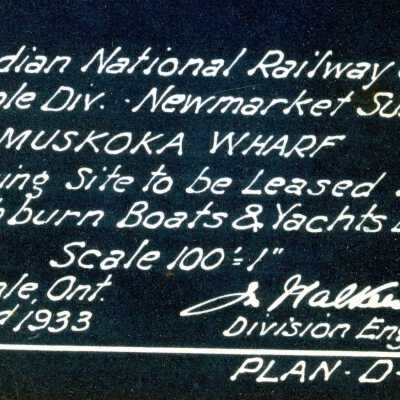 dian National Railway
ale Div. · Newmarket Su
MUSKOKA WHARF
ing Site to be Leased
hburn Boats & Yachts
Scale 100'=1"
ale, Ont.
d 1933
Division Eng
PLAN-D-